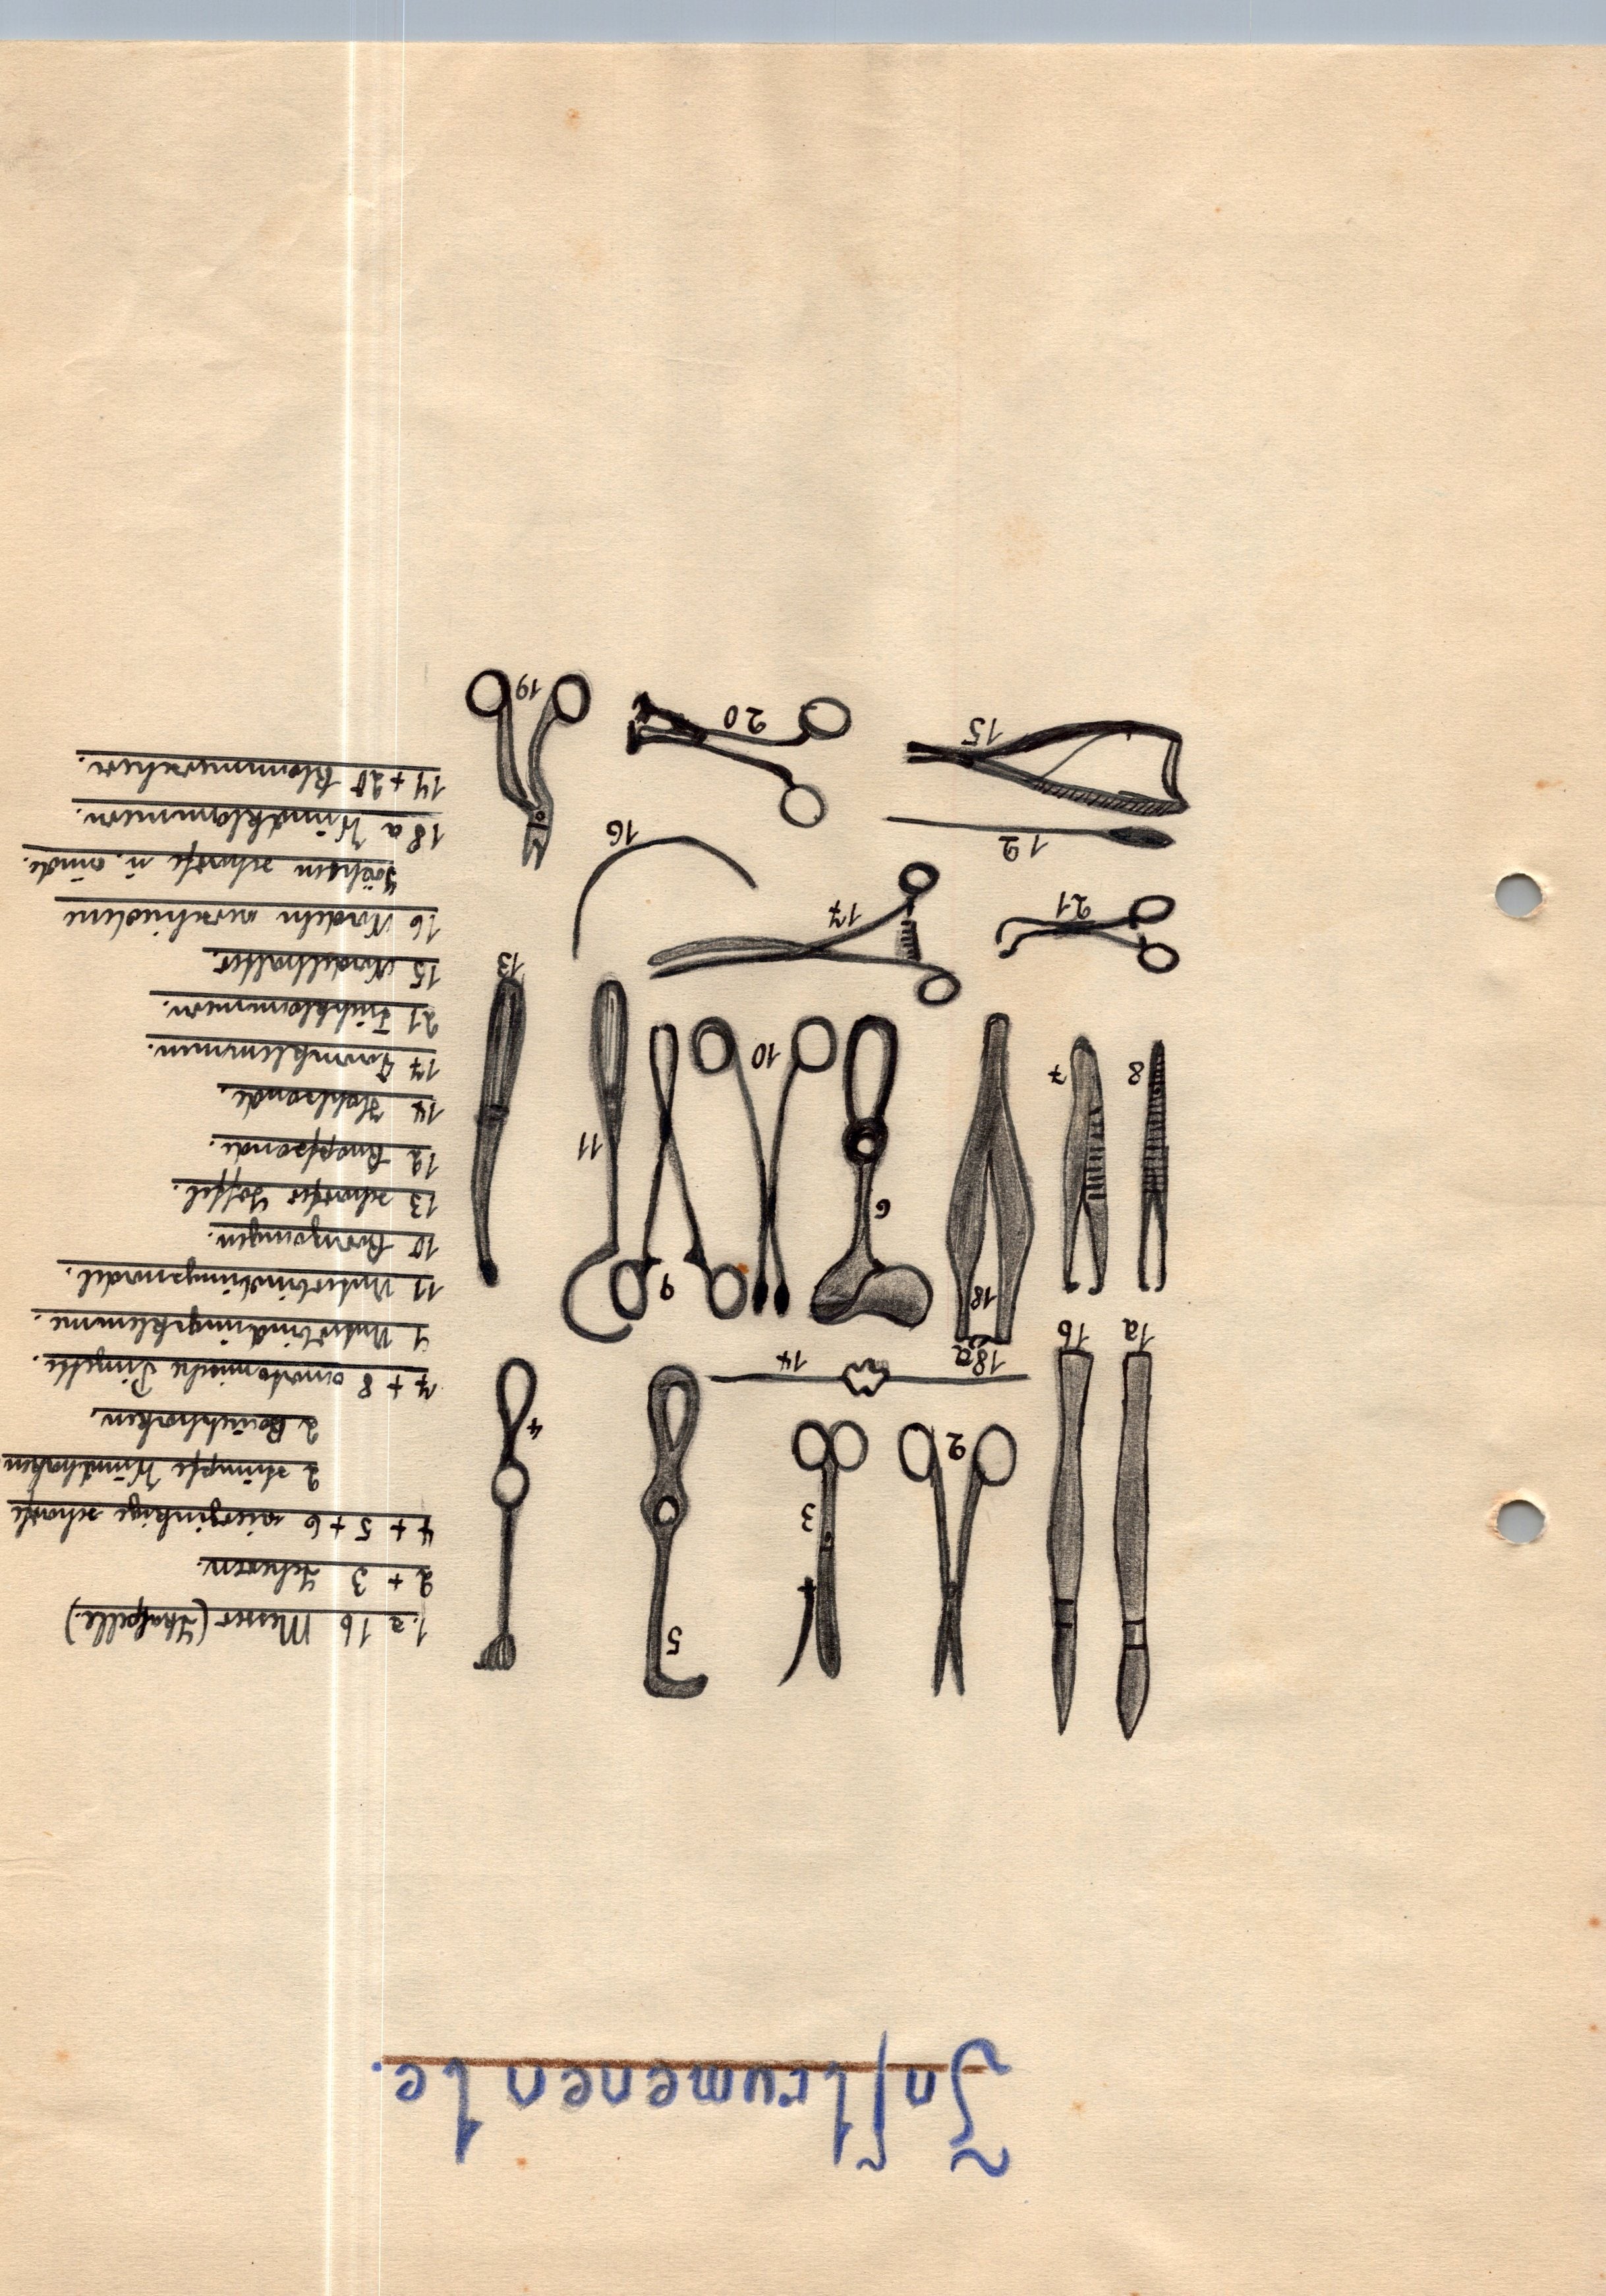 Inſtrumenente.
1a
1b
2
3
5
4
18a
14
8
7
18
6
10
9
11
13
21
17
16
12
15
20
19
1.a 1b Messer (Skalpelle.)
2 + 3 Scheren.
4 + 5 + 6 vierzinkige scharfe
2 stumpfe Wundhaken
2 Bauchhaken.
7 + 8 anatomische Pinzette.
9 Unterbindungsklemme.
11 Unterbindungsnadel.
10 Kornzangen.
13 scharfer Löffel.
12 Knopfsonde.
14 Hohlsonde.
17 Darmklemmen.
21 Tuchklammern.
15 Nadelhalter.
16 Nadeln verschiedene
scharfe u. runde.
18 a Wundklammern.
19 + 20 Klammerscheren.